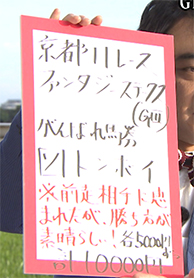 G
京都11レース
ファンタジーステークス
(GⅢ)
がんばれ馬券
トンボイ
※前走相手に恵
まれたが、勝ち方が
素晴らしい！各5000円
計10000円